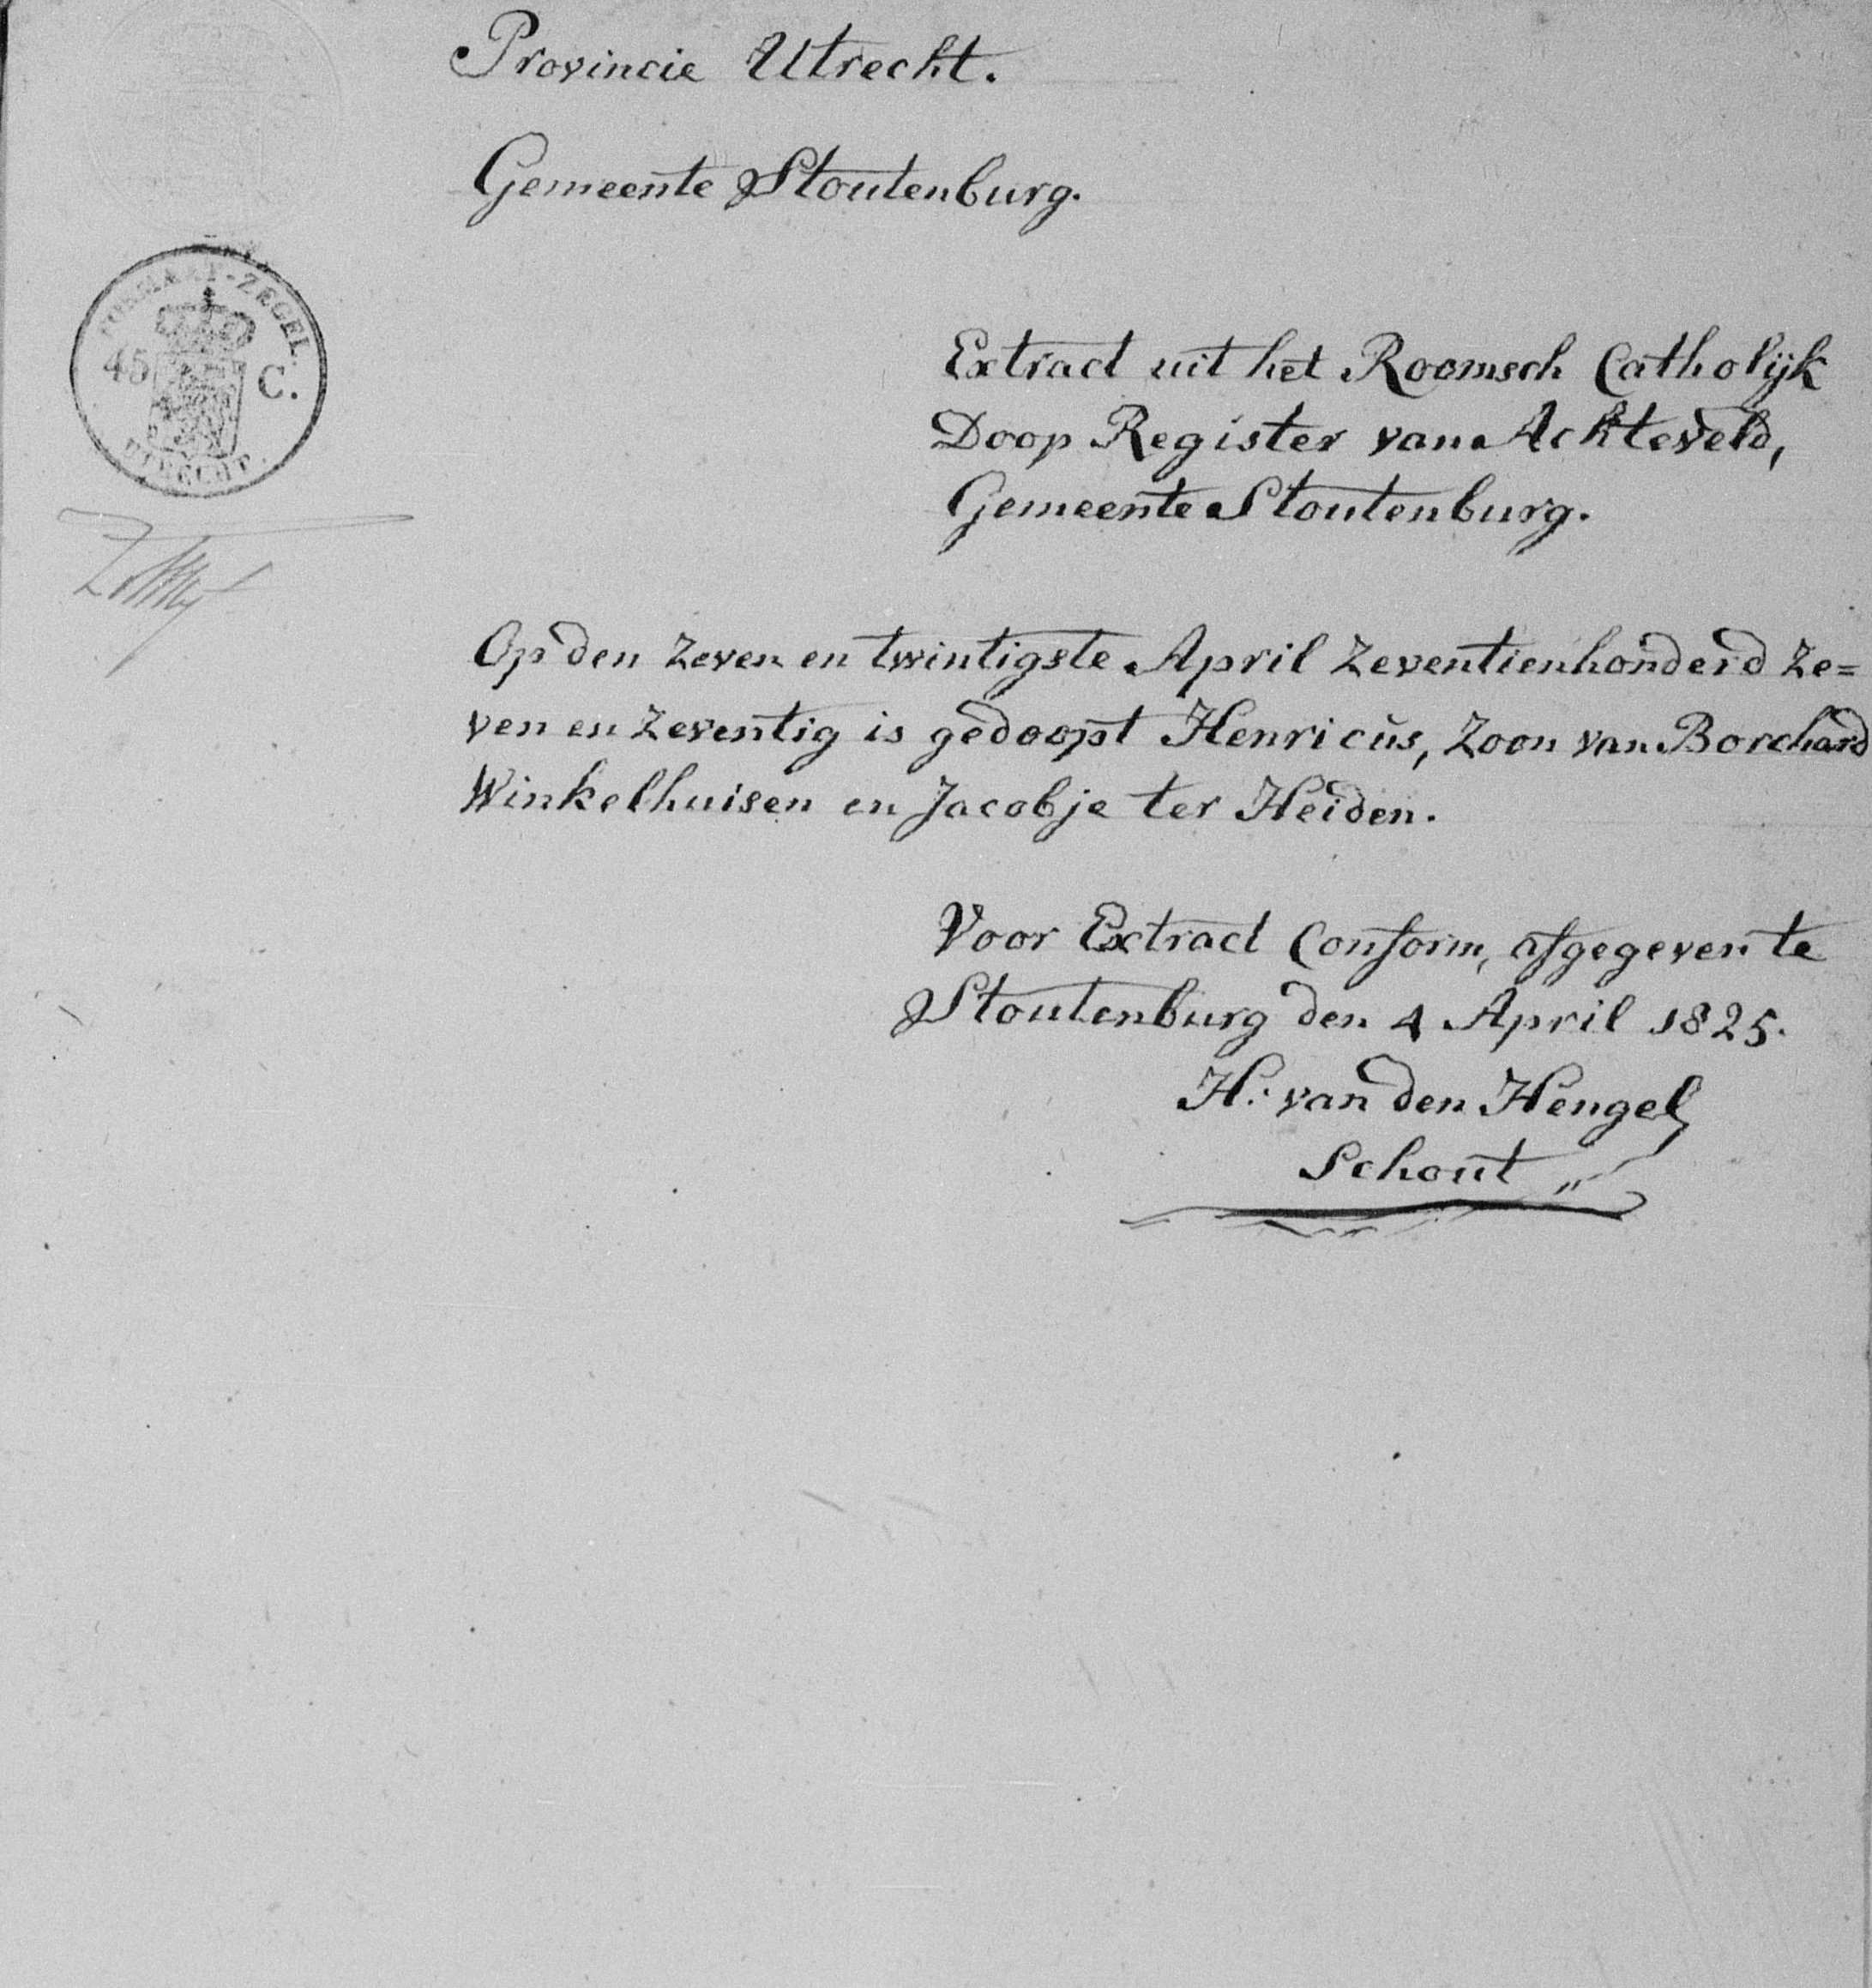 Provincie Utrecht.
Gemeente Stoutenburg.
FORMAAT-ZEGEL.
45 C.
UTRECHT.
Extract uit het Roomsch Catholijk
Doop Register van Achteveld,
Gemeente Stoutenburg.
Op den zeven en twintigste April zeventienhonderd ze=
ven en zeventig is gedoopt Henricus, zoon van Borchard
Winkelhuisen en Jacobje ter Heiden.
Voor Extract Conform, afgegeven te
Stoutenburg den 4 April 1825.
H. van den Hengel
Schout